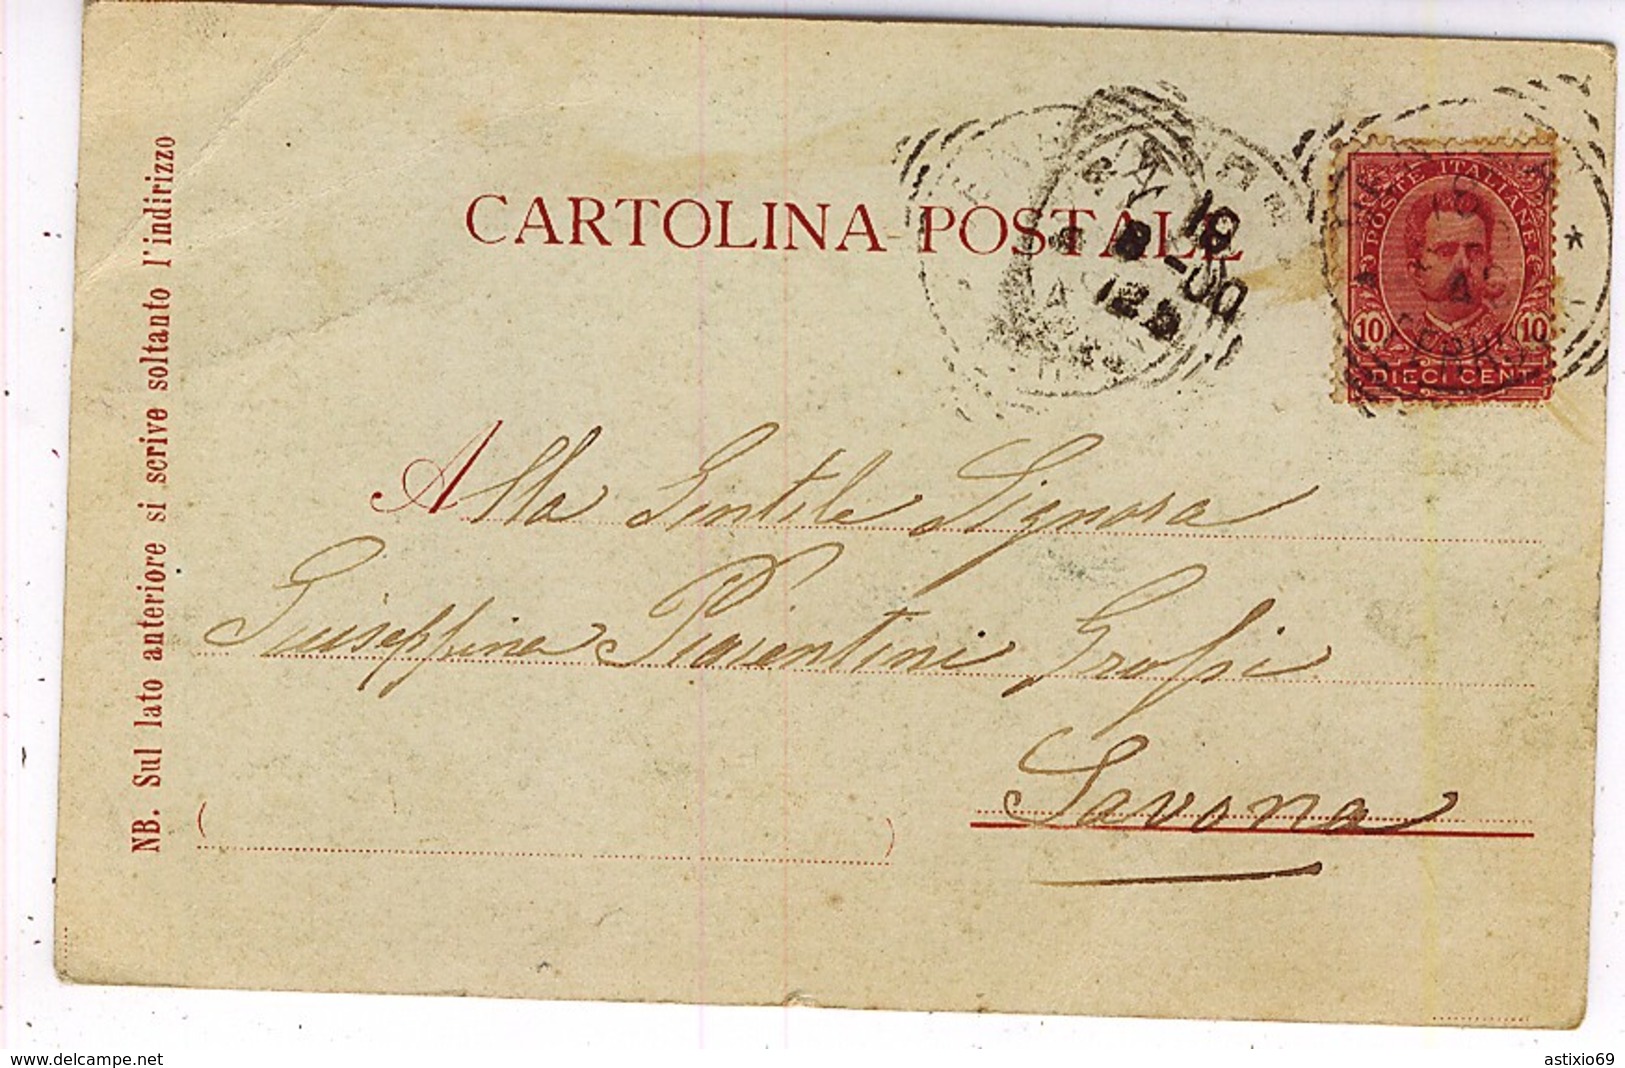 CARTOLINA POSTALE
POSTE ITALIANE
10 10
DIECI CENT
10
8 -00
12 S
Alla Gentile Signora
Giuseppina Piacentini
Savona
NB. Sul lato anteriore si scrive soltanto l'indirizzo
www.delcampe.net
astixio69